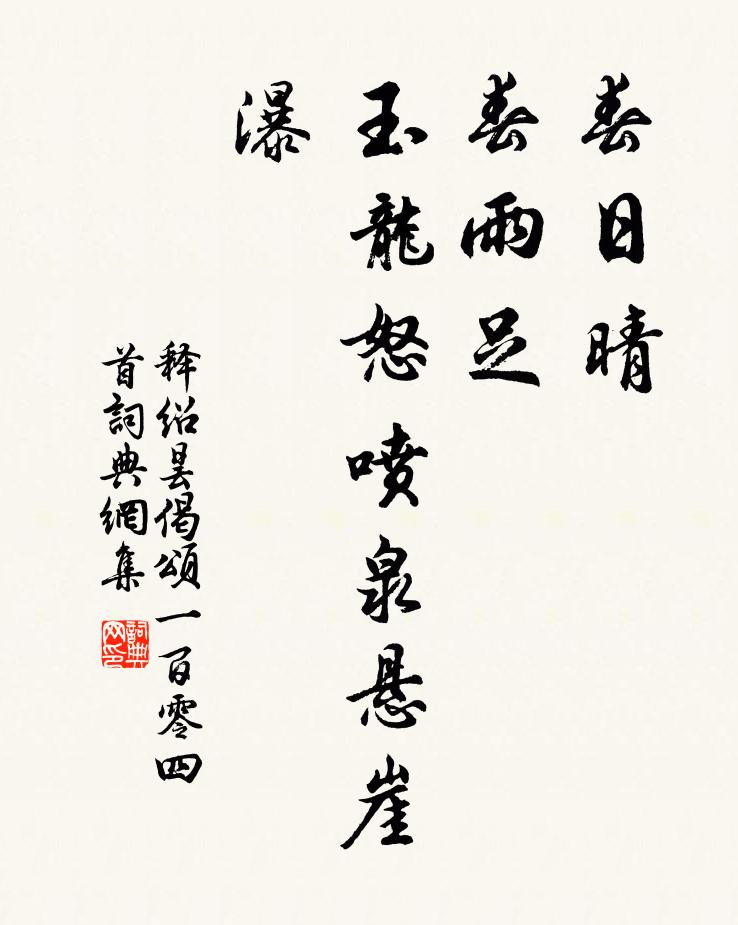 春日晴
春雨足
玉龍怒噴泉悬崖
瀑
释紹昙偈頌一百零四
首詞典網集
詞典
网印